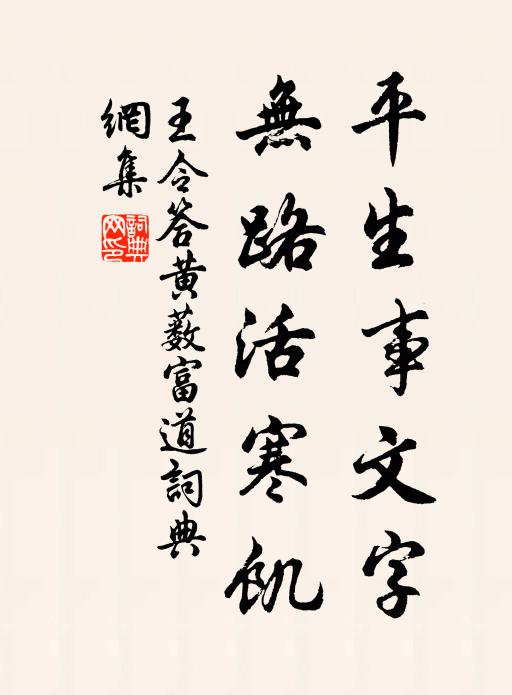 平生事文字
無路活寒飢
王令答黄藪富道詞典
網集
詞典
网印